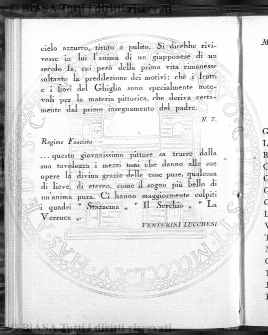 cielo azzurro, tinto a pulito. Si direbbe rivi-
vesse in lui l'anima di un giapponese di un
secolo fa, cui però della prima vita rimanesse
soltanto la predilezione dei motivi: chè i frutti
e i fiori del Ghiglia sono specialmente note-
voli per la materia pittorica, che deriva certa-
mente dal primo insegnamento del padre.
N. T.
Regime Fascista
... questo giovanissimo pittore sa trarre dalla
sua tavolozza i mezzi toni che danno alle sue
opere la divina grazia delle cose pure, qualcosa
di lieve, di etereo, come il sogno più bello di
un'anima pura. Ci hanno maggiormente colpiti
i quadri " Stazzema „ " Il Serchio „ " La
Verruca „.
VENTURINI LUCCHESI